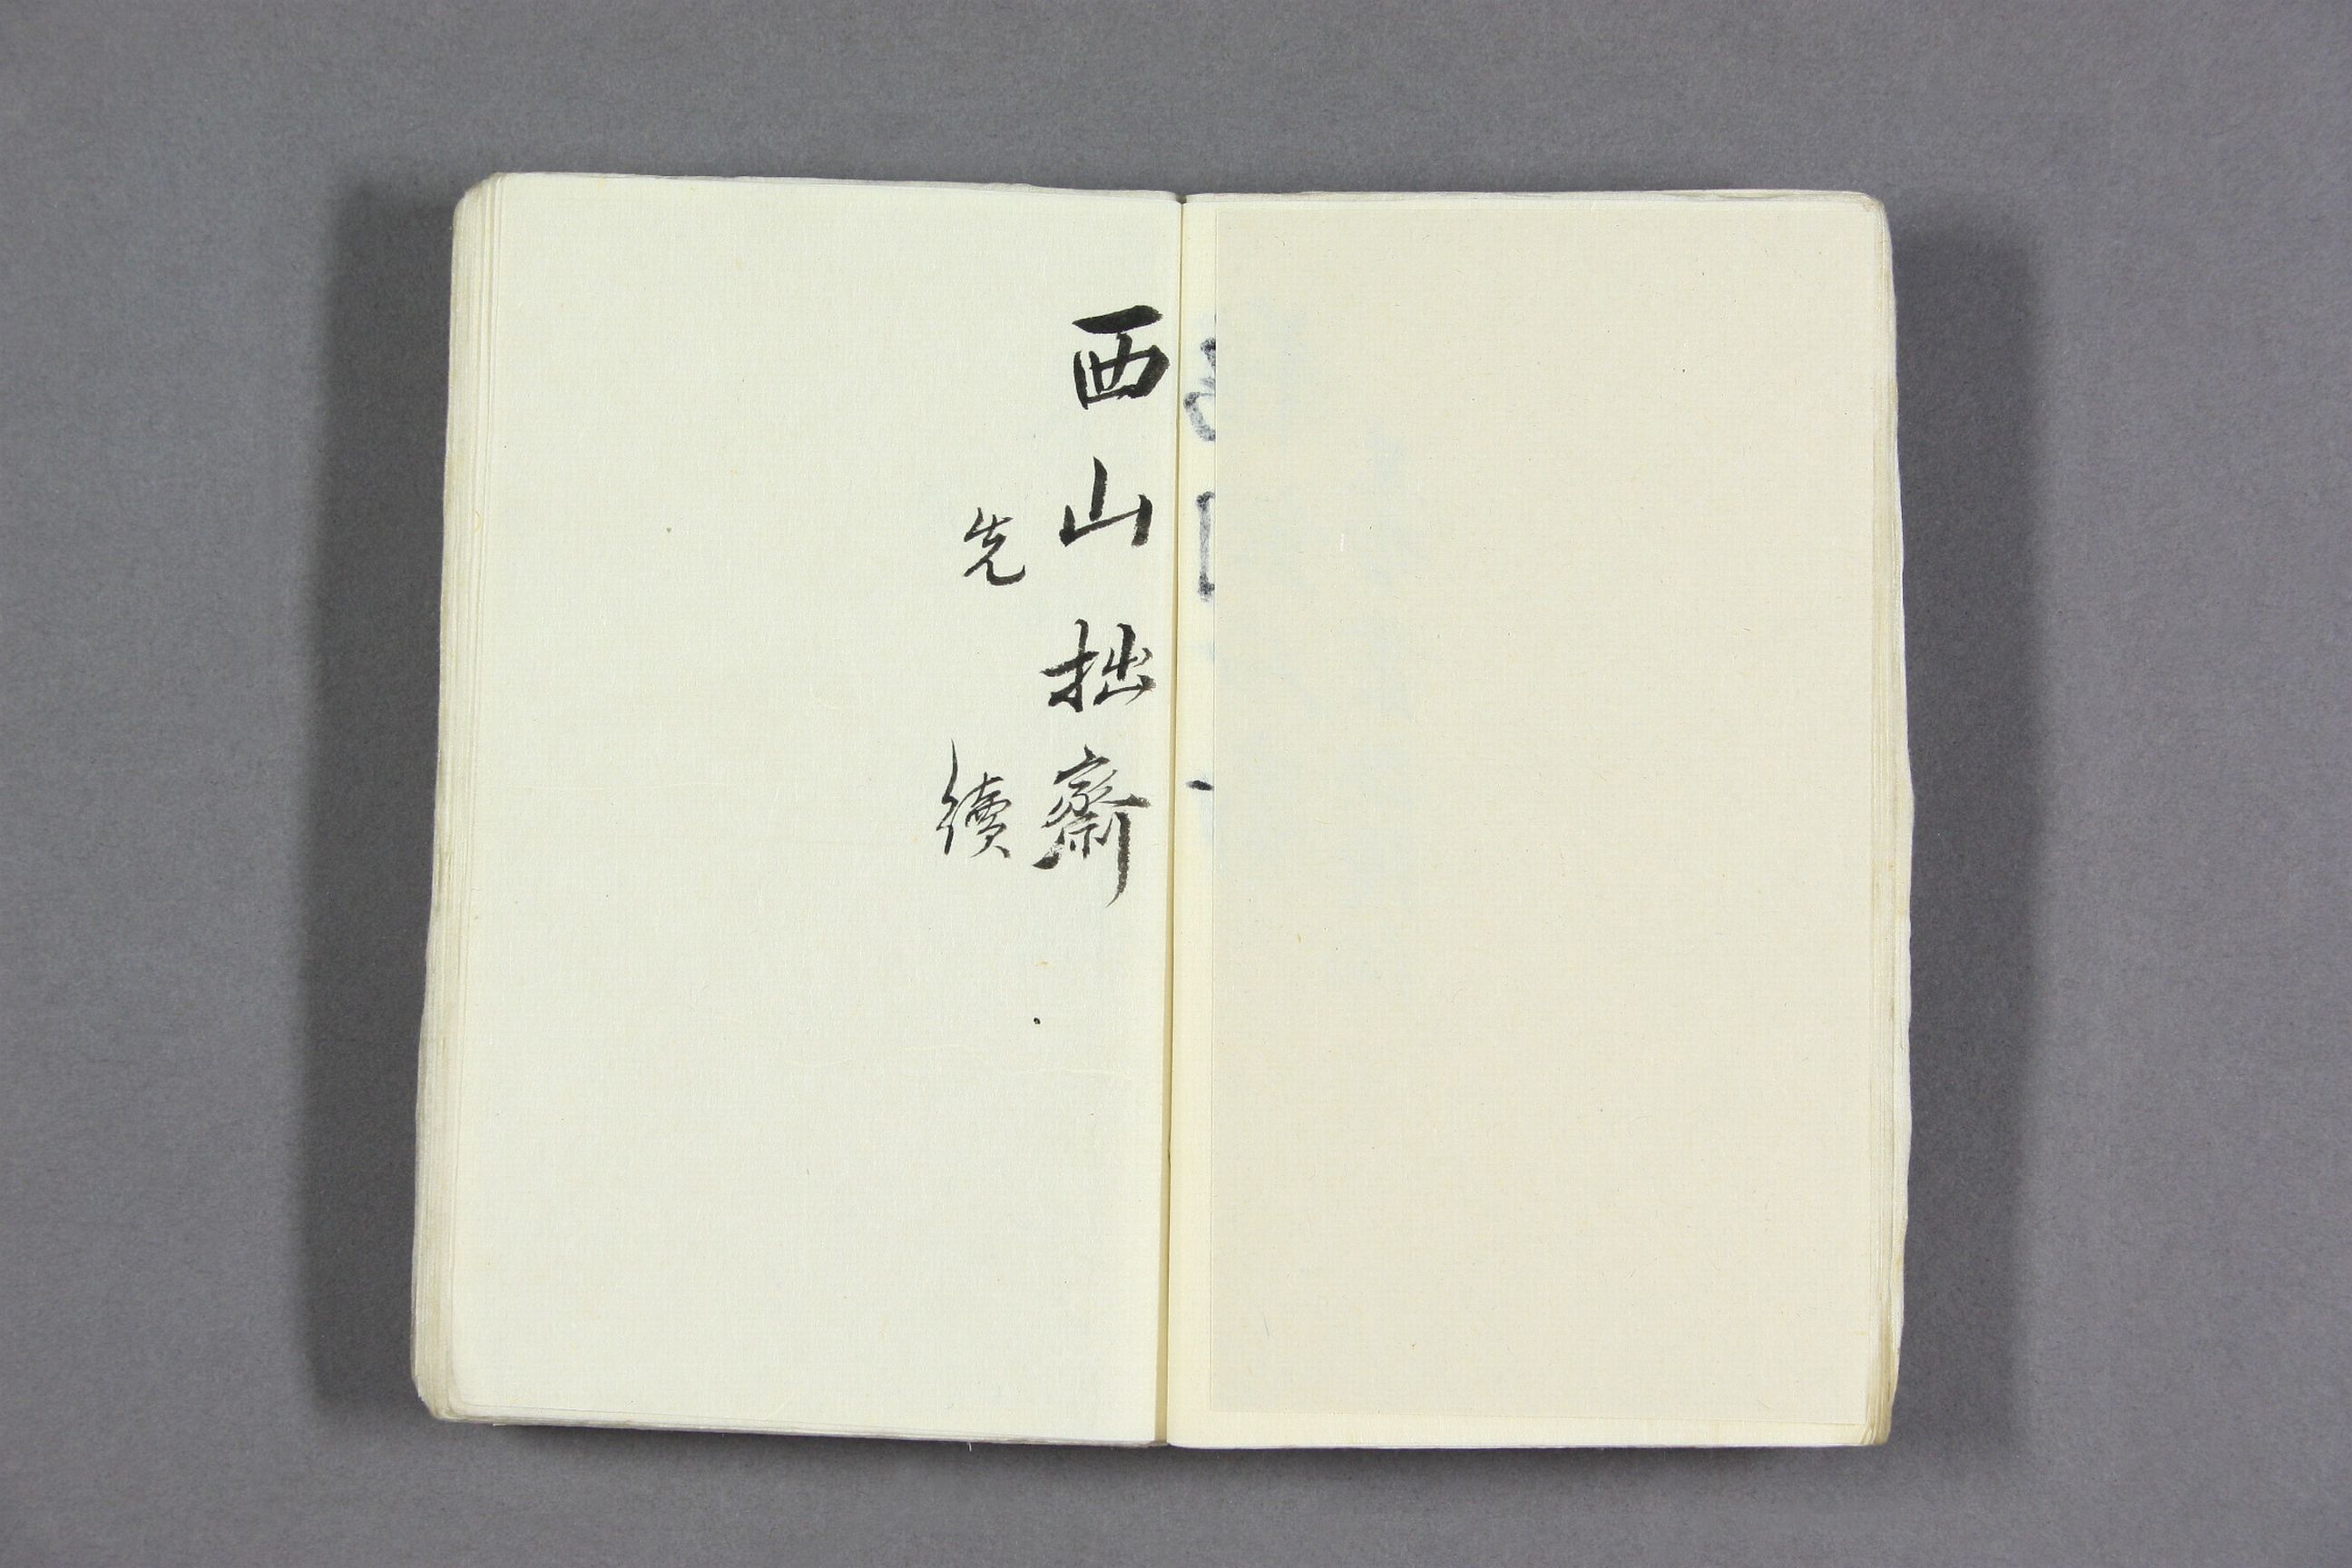 西山拙齋
先續